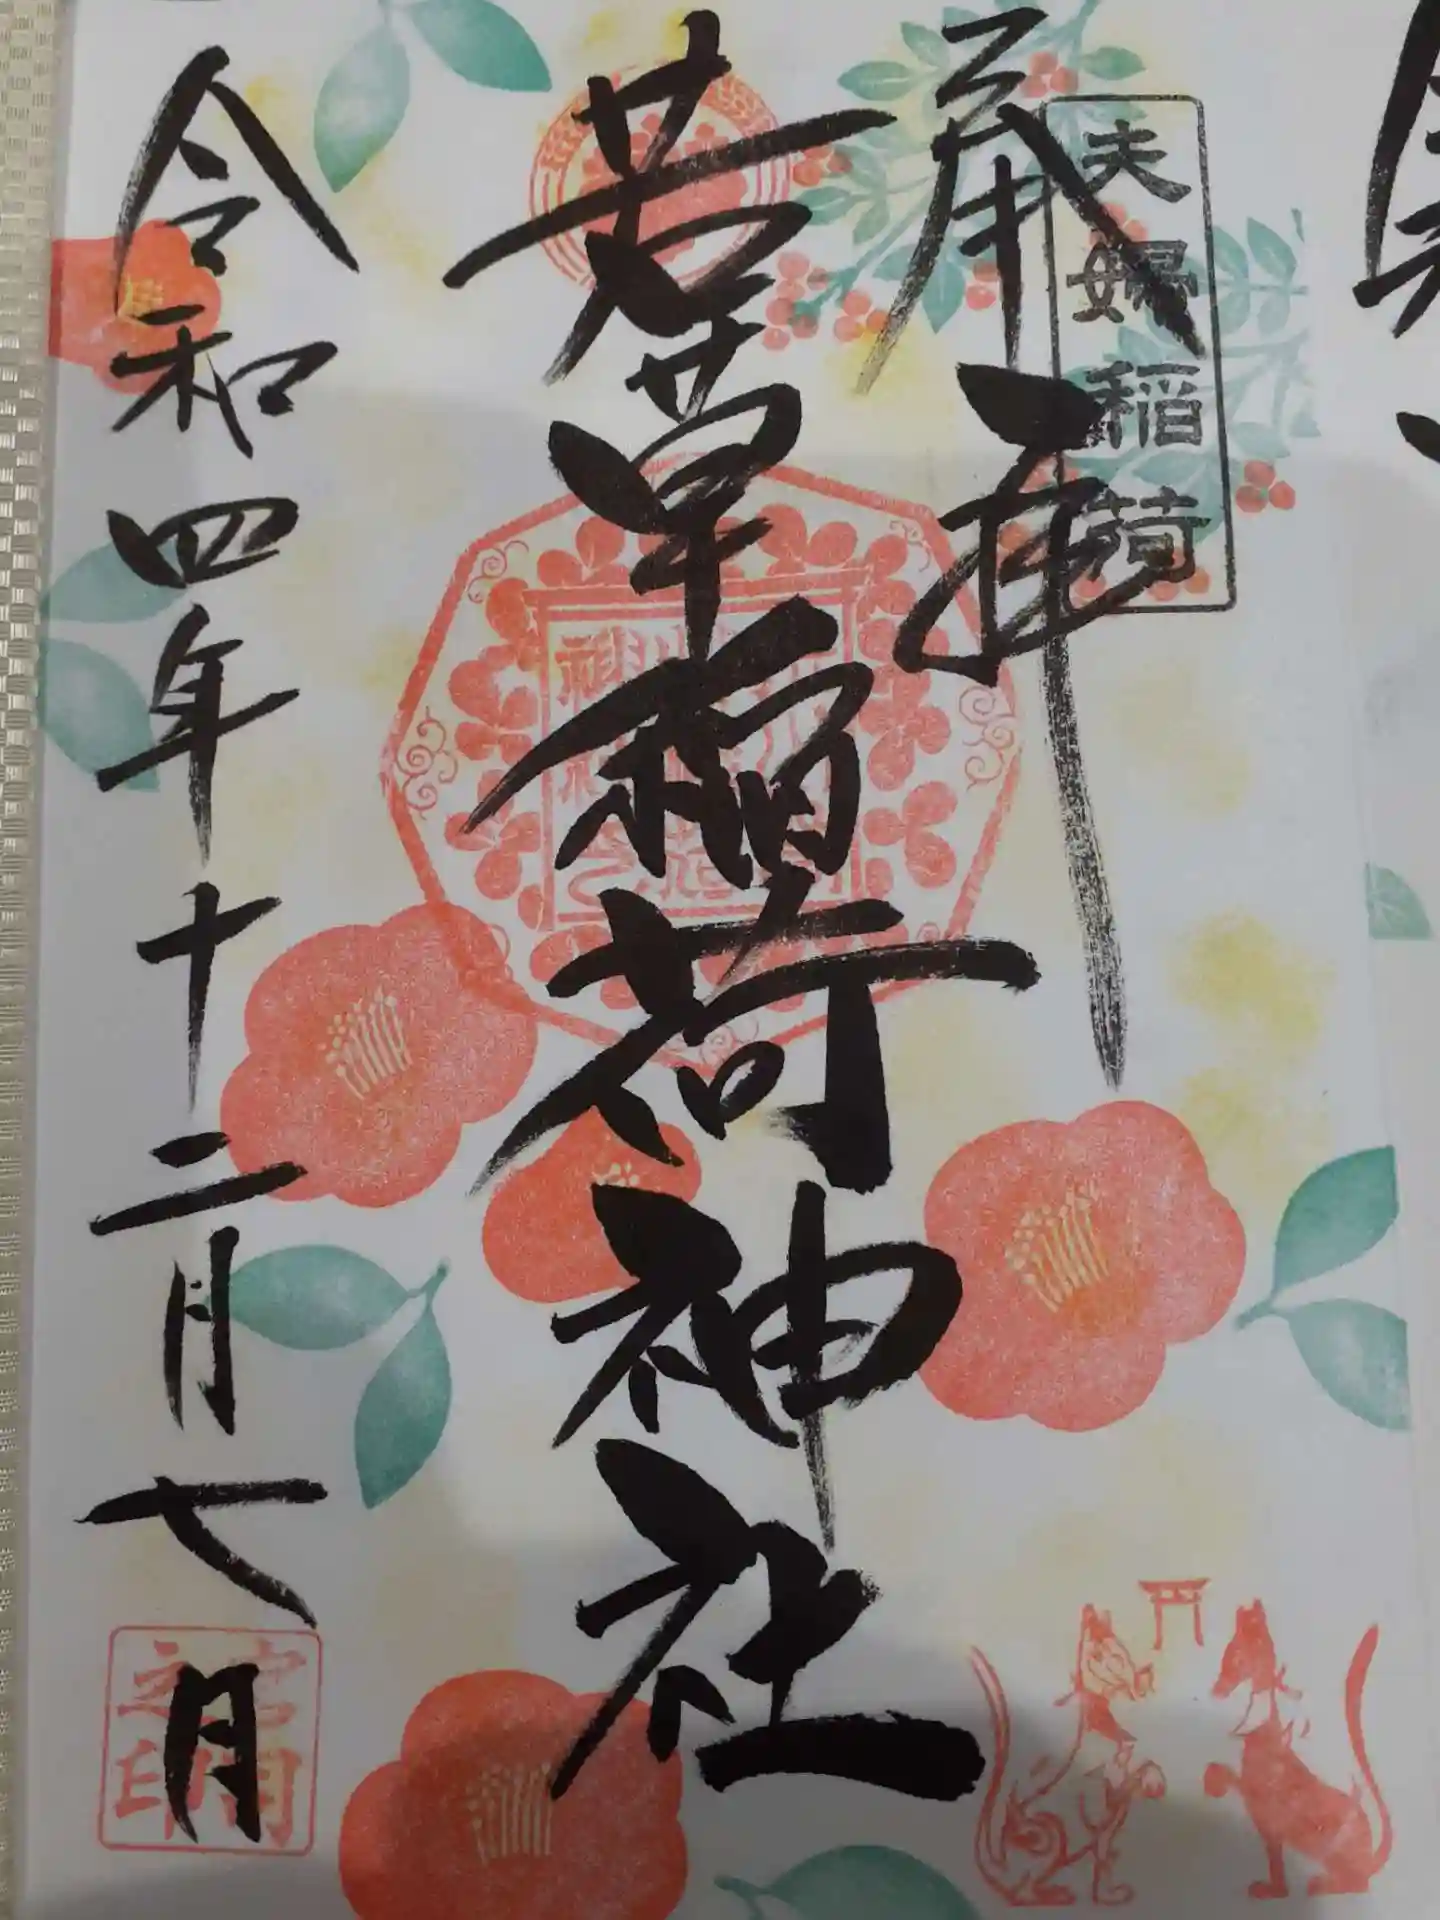 夫婦稲荷
奉拝
若草稲荷神社
令和四年十二月七日
宮司之印